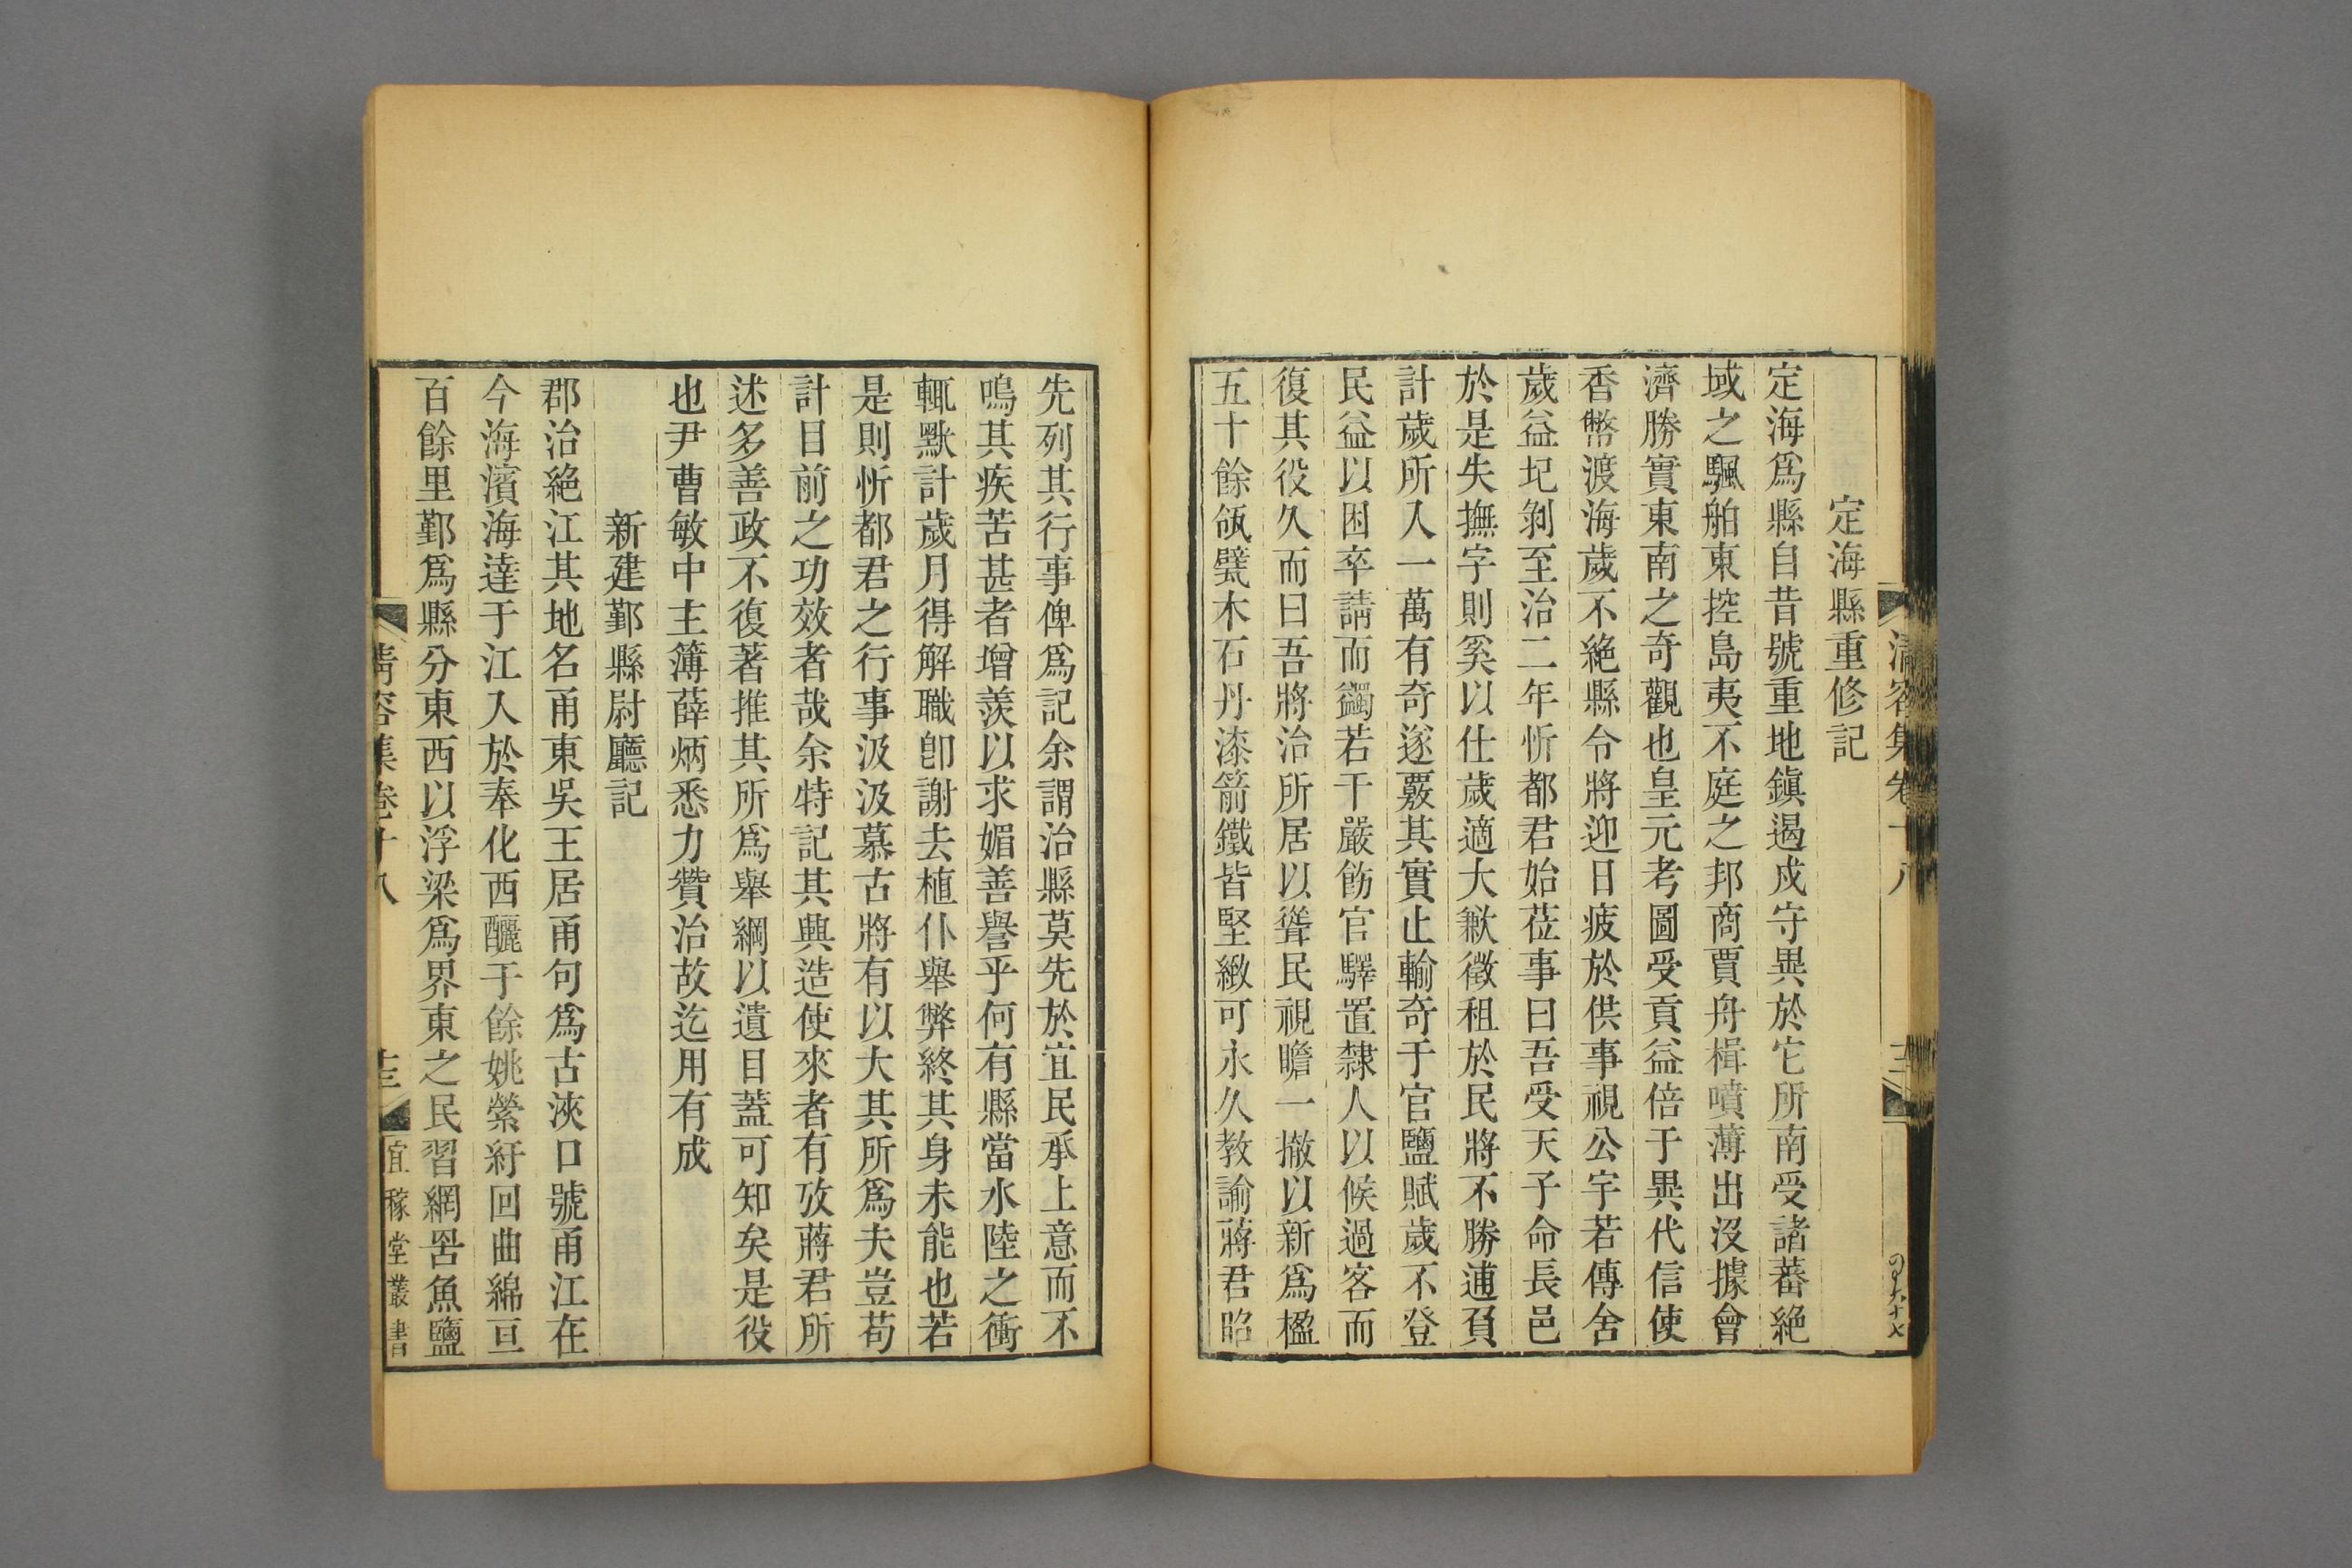 定海縣重修記
定海爲縣自昔號重地鎭遏戍守異於它所南受諸蕃絕
域之颿舶東控島夷不庭之邦商賈舟楫噴薄出沒據會
濟勝實東南之奇觀也皇元考圖受貢益倍于異代信使
香幣渡海歲不絕縣令將迎日疲於供事視公宇若傳舍
歲益圮剝至治二年忻都君始莅事曰吾受天子命長邑
於是失撫字則奚以仕歲適大歉徵租於民將不勝逋負
計歲所入一萬有奇遂覈其實止輸奇于官鹽賦歲不登
民益以困卒請而蠲若干嚴飭官驛置隸人以候過客而
復其役久而曰吾將治所居以聳民視瞻一撤以新爲楹
五十餘瓴甓木石丹漆箭鐵皆堅緻可永久教諭蔣君昭
清容集卷十八
先列其行事俾爲記余謂治縣莫先於宜民承上意而不
嗚其疾苦甚者增羨以求媚善譽乎何有縣當水陸之衝
輒默計歲月得解職卽謝去植仆舉弊終其身未能也若
是則忻都君之行事汲汲慕古將有以大其所爲夫豈苟
計目前之功效者哉余特記其興造使來者有攷蔣君所
述多善政不復著推其所爲舉綱以遺目蓋可知矣是役
也尹曹敏中主簿薛炳悉力贊治故迄用有成
新建鄞縣尉廳記
郡治絕江其地名甬東吳王居甬句爲古浹口號甬江在
今海濱海達于江入於奉化西釃于餘姚縈紆回曲綿亘
百餘里鄞爲縣分東西以浮梁爲界東之民習網罟魚鹽
清容集卷十八
十三
宜稼堂叢書